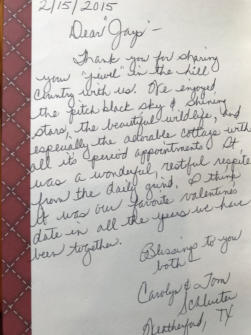 2/15/2015
Dear "Jays" -
Thank you for sharing
your "jewel" in the hill
country with us. We enjoyed
the pitch black sky & shining
stars, the beautiful wildlife, and
especially the adorable cottage with
all it's period appointments. It
was a wonderful restful respite
from the daily grind. I think
it was our favorite valentines
date in all the years we have
been together.
Blessings to you
both
Carolyn & Tom
Schluter
Weatherford, TX